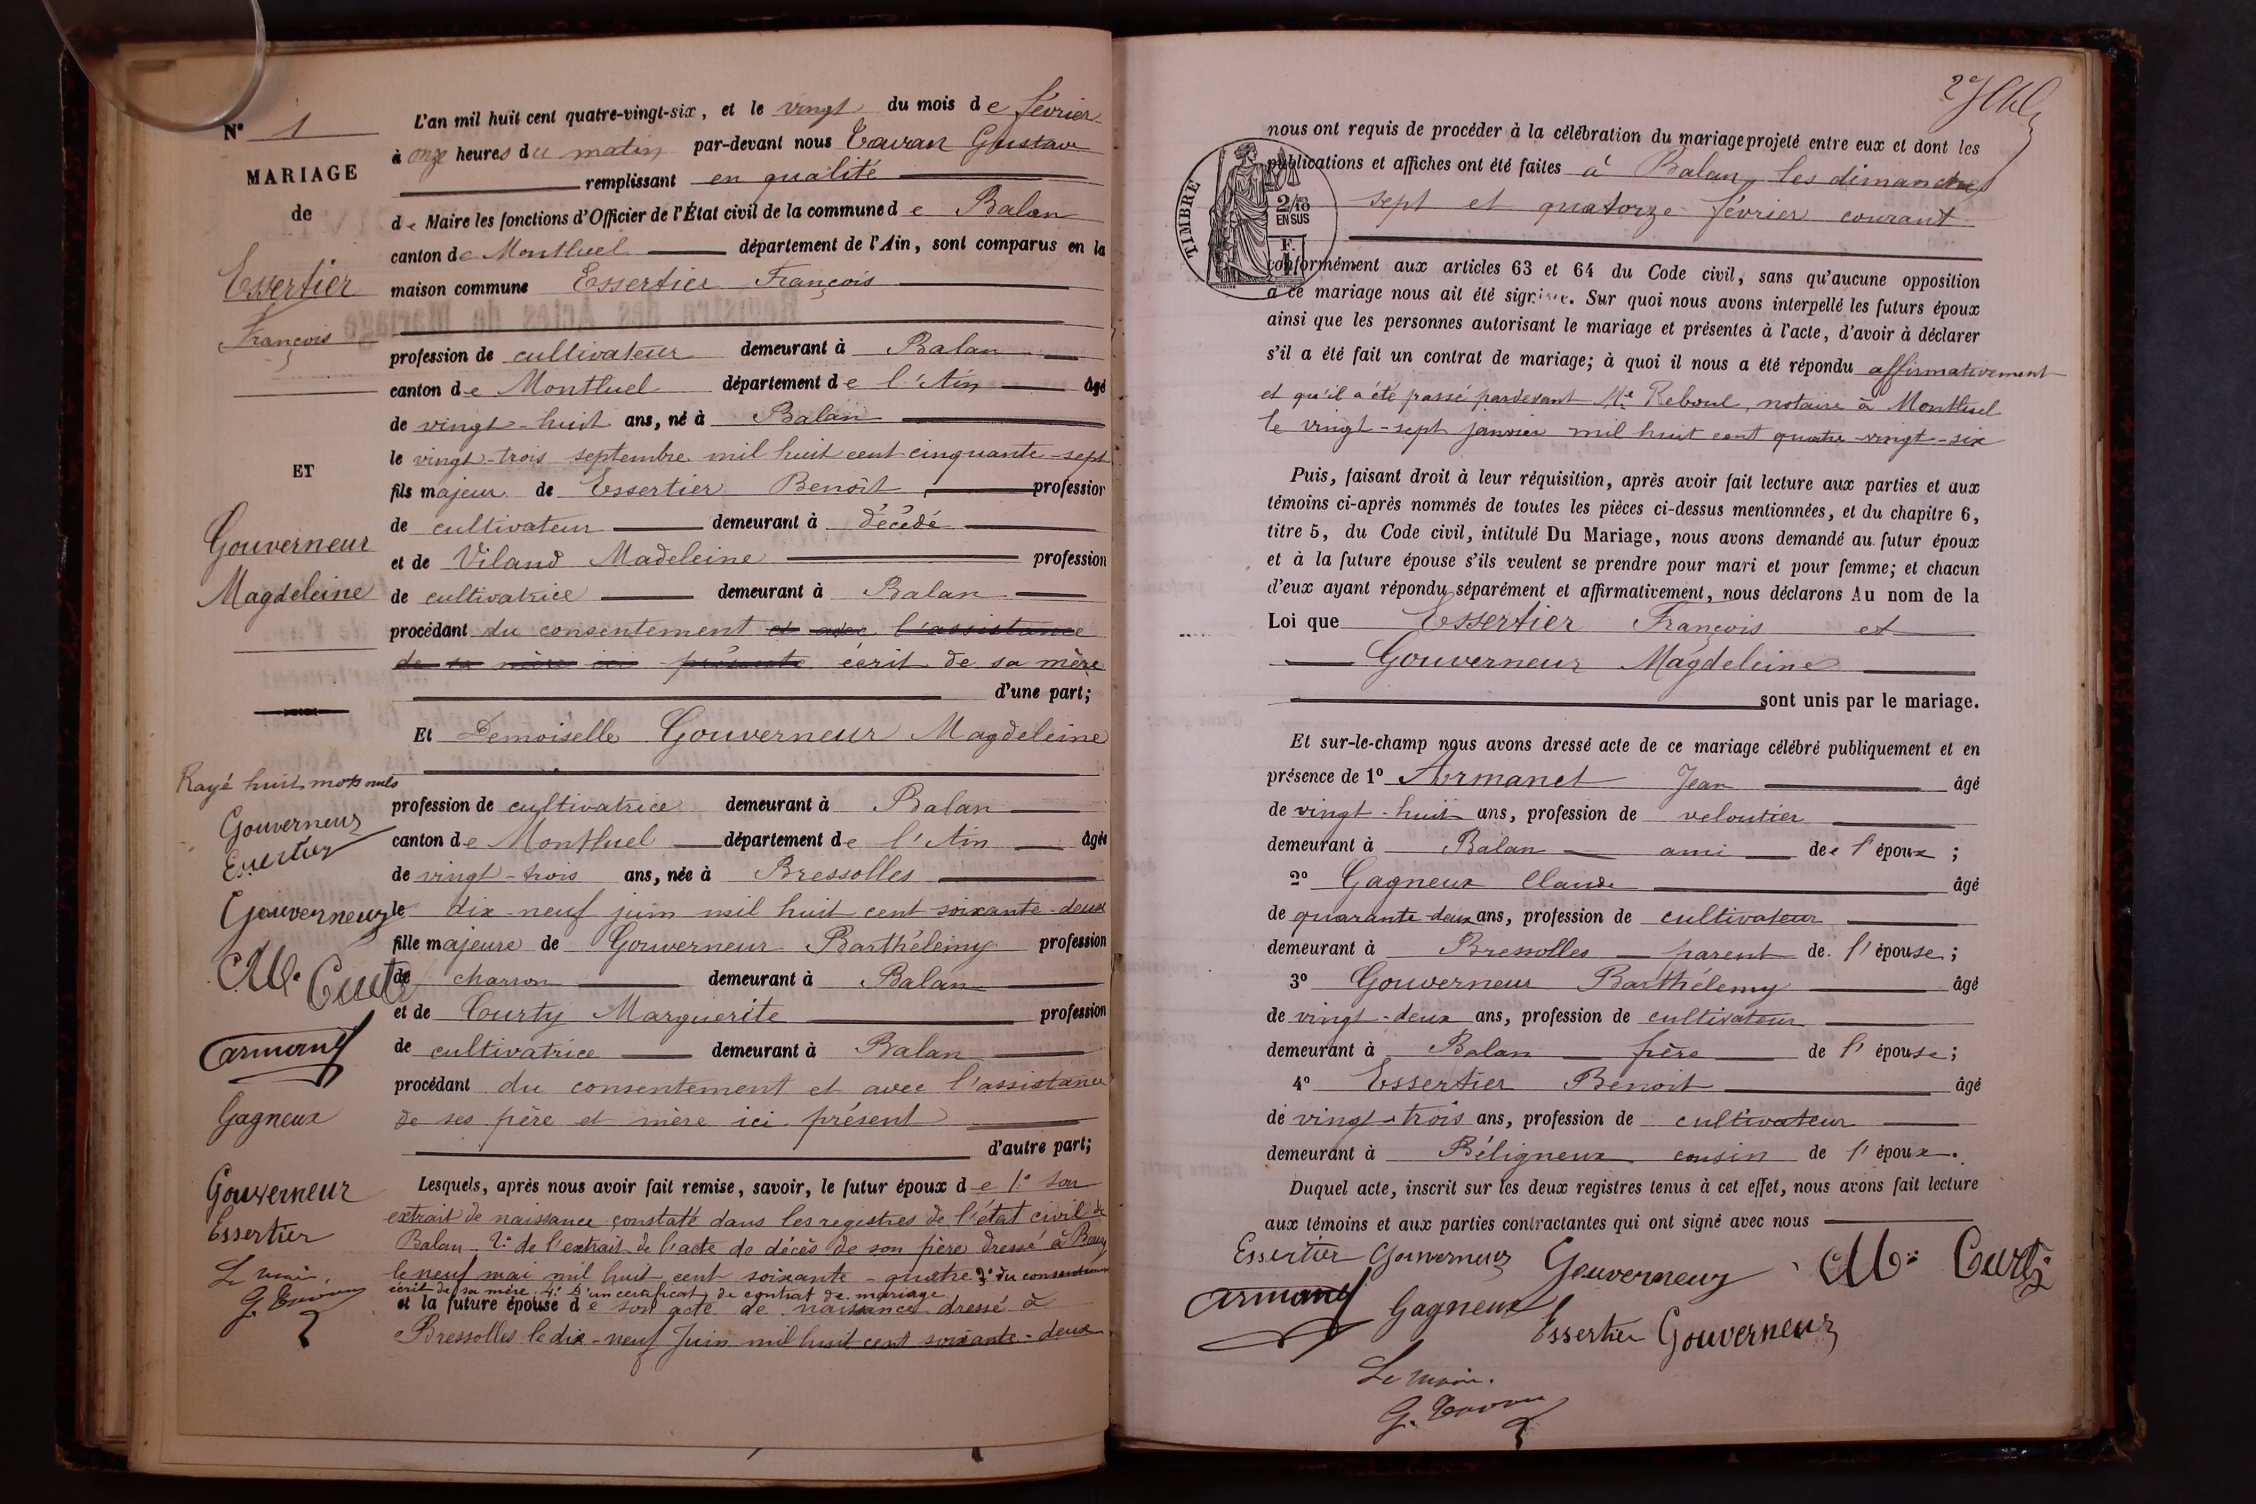 N° 1
MARIAGE
de
Essertier
François
ET
Gouverneur
Magdeleine
Rayé huit mots nuls
Gouverneur
Essertier
Gouverneur
M. Curty
armanet
Gagneux
Gouverneur
Essertier
Le maire,
G. Tavan
L'an mil huit cent quatre-vingt-six, et le vingt du mois de février
à onze heures du matin par-devant nous Tavan Gustave
remplissant en qualité
de Maire les fonctions d'Officier de l'État civil de la commune de Balan
canton de Montluel département de l'Ain, sont comparus en la
maison commune Essertier François
profession de cultivateur demeurant à Balan
canton de Montluel département de l'Ain âgé
de vingt-huit ans, né à Balan
le vingt-trois septembre mil huit cent cinquante-sept
fils majeur de Essertier Benoît, profession
de cultivateur demeurant à décédé
et de Viland Madeleine profession
de cultivatrice demeurant à Balan
procédant du consentement et avec l'assistance
de sa mère ici présente écrit de sa mère
d'une part;
Et Demoiselle Gouverneur Magdeleine
profession de cultivatrice demeurant à Balan
canton de Montluel département de l'Ain âgée
de vingt-trois ans, née à Bressolles
le dix-neuf juin mil huit cent soixante-deux
fille majeure de Gouverneur Barthélemy profession
de charron demeurant à Balan
et de Curty Marguerite profession
de cultivatrice demeurant à Balan
procédant du consentement et avec l'assistance
de ses père et mère ici présent
d'autre part;
Lesquels, après nous avoir fait remise, savoir, le futur époux de 1° son
extrait de naissance constaté dans les registres de l'état civil de
Balan 2° de l'extrait de l'acte de décès de son père dressé à
le neuf mai mil huit cent soixante-quatre 3° du consentement
écrit de sa mère 4° d'un certificat de contrat de mariage
et la future épouse de son acte de naissance dressé à
Bressolles le dix-neuf Juin mil huit cent soixante-deux
nous ont requis de procéder à la célébration du mariage projeté entre eux et dont les
publications et affiches ont été faites à Balan, les dimanches
sept et quatorze février courant
TIMBRE
2/10
EN SUS
conformément aux articles 63 et 64 du Code civil, sans qu'aucune opposition
à ce mariage nous ait été signifiée. Sur quoi nous avons interpellé les futurs époux
ainsi que les personnes autorisant le mariage et présentes à l'acte, d'avoir à déclarer
s'il a été fait un contrat de mariage; à quoi il nous a été répondu affirmativement
et qu'il a été passé pardevant Me Reboul, notaire à Montluel
le vingt-sept janvier mil huit cent quatre-vingt-six
Puis, faisant droit à leur réquisition, après avoir fait lecture aux parties et aux
témoins ci-après nommés de toutes les pièces ci-dessus mentionnées, et du chapitre 6,
titre 5, du Code civil, intitulé Du Mariage, nous avons demandé au futur époux
et à la future épouse s'ils veulent se prendre pour mari et pour femme; et chacun
d'eux ayant répondu séparément et affirmativement, nous déclarons Au nom de la
Loi que Essertier François et
Gouverneur Magdeleine
sont unis par le mariage.
Et sur-le-champ nous avons dressé acte de ce mariage célébré publiquement et en
présence de 1° Armanet Jean âgé
de vingt-huit ans, profession de veloutier
demeurant à Balan ami de l'époux;
2° Gagneux Claude âgé
de quarante-deux ans, profession de cultivateur
demeurant à Bressolles parent de l'épouse;
3° Gouverneur Barthélemy âgé
de vingt-deux ans, profession de cultivateur
demeurant à Balan frère de l'épouse;
4° Essertier Benoît âgé
de vingt-trois ans, profession de cultivateur
demeurant à Béligneux cousin de l'époux.
Duquel acte, inscrit sur les deux registres tenus à cet effet, nous avons fait lecture
aux témoins et aux parties contractantes qui ont signé avec nous
Essertier Gouverneur Gouverneur M. Curty
armanet Gagneux Essertier Gouverneur
Le maire.
G. Tavan